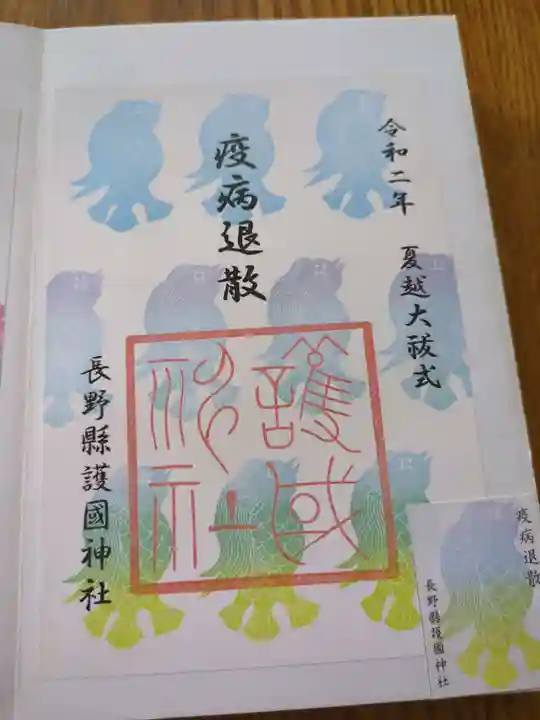 令和二年 夏越大祓式
疫病退散
長野縣護國神社
護国
神社
疫病退散
長野縣護國神社